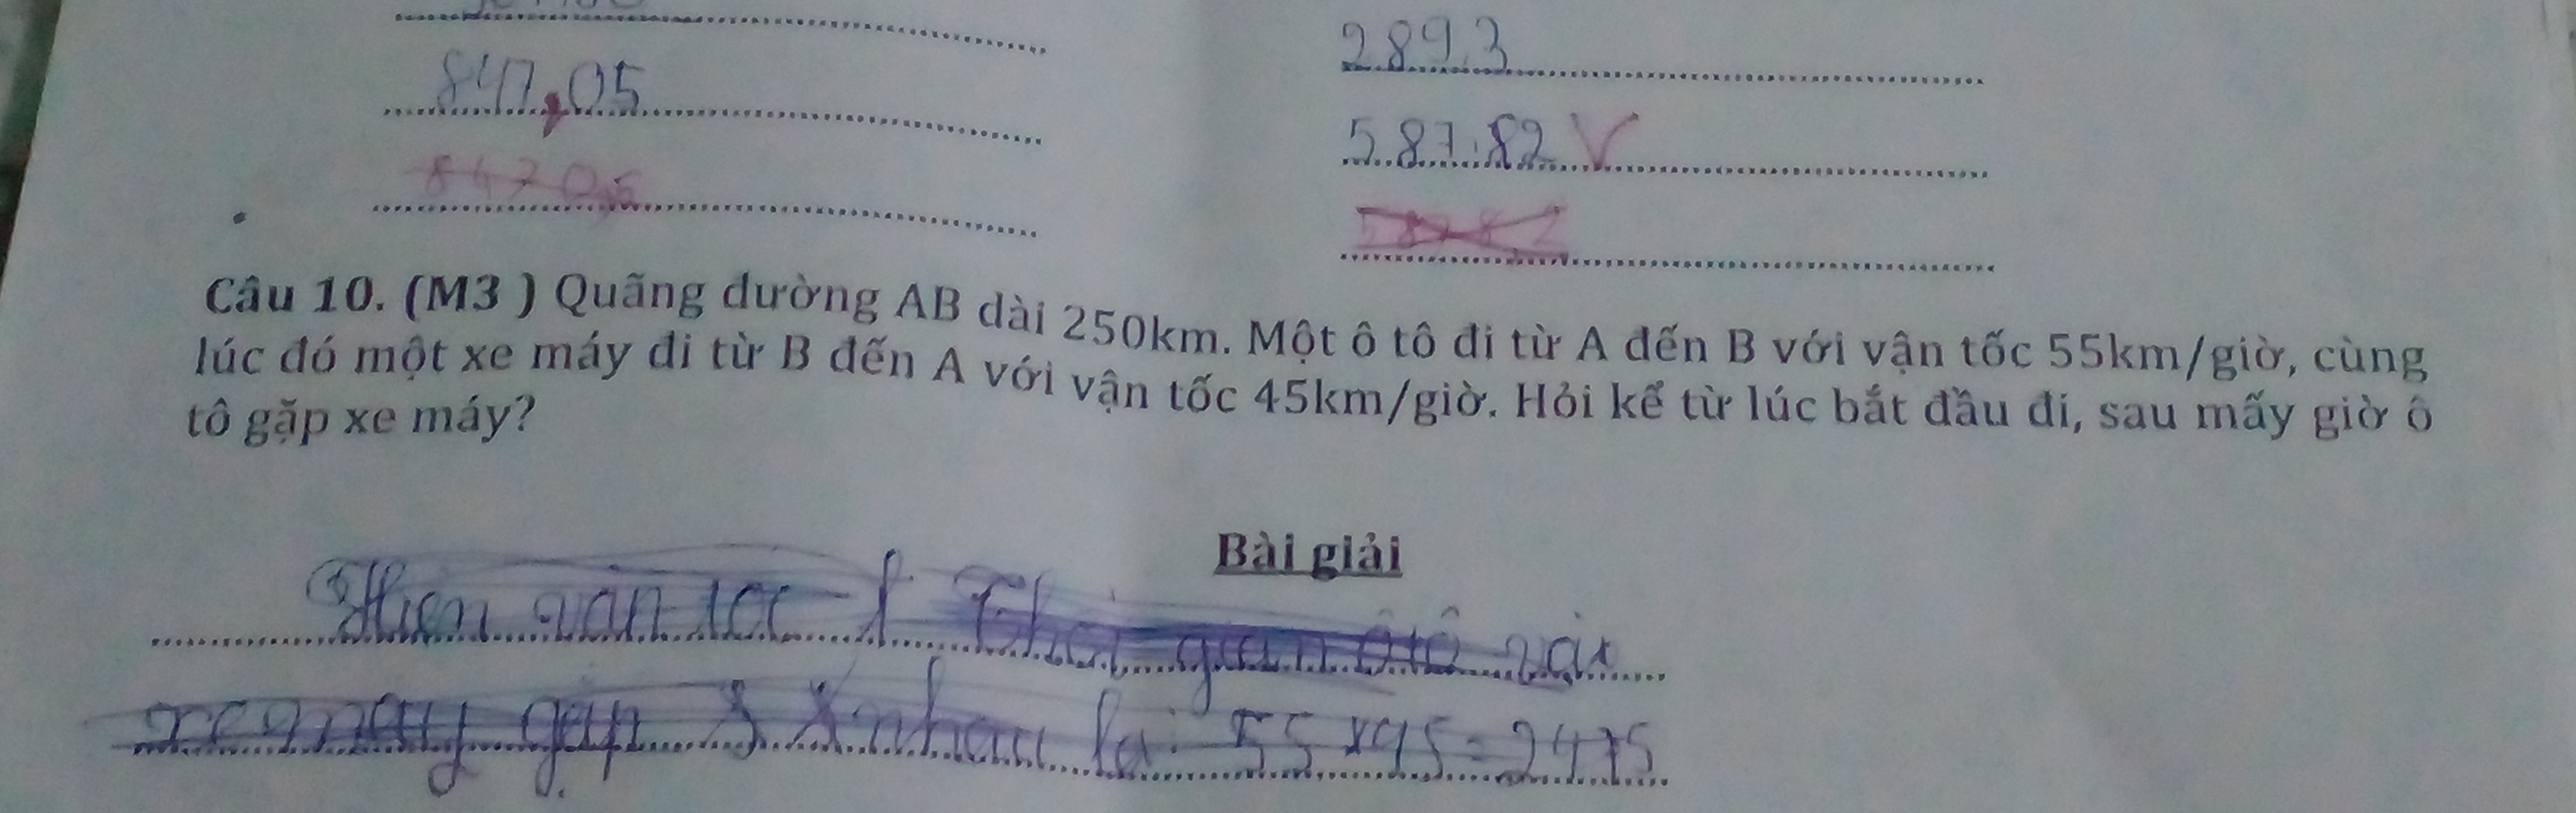 847,05
84705
2893
587.82 V
58782
Câu 10. (M3 ) Quãng đường AB dài 250km. Một ô tô đi từ A đến B với vận tốc 55km/giờ, cùng
lúc đó một xe máy đi từ B đến A với vận tốc 45km/giờ. Hỏi kể từ lúc bắt đầu đi, sau mấy giờ ô
tô gặp xe máy?
Bài giải
Thời gian ôtô và
xe máy gặp nhau là 55 x 45 = 2475